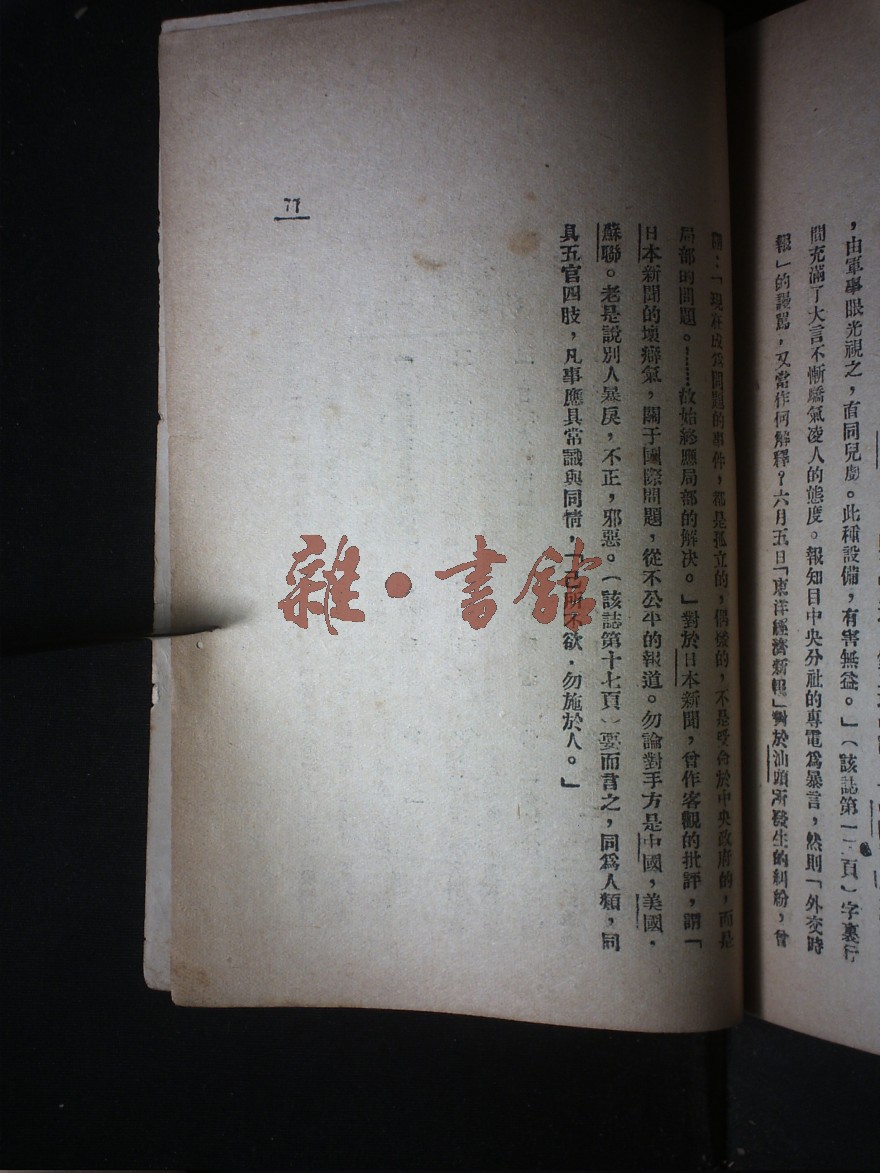 ，由軍事眼光視之，直同兒戲。此種設備，有害無益。」（該誌第一二頁）字裏行
間充滿了大言不慚驕氣凌人的態度。報知目中央分社的專電爲暴言，然則「外交時
報」的謾罵，又當作何解釋？六月五日「東洋經濟新報」對於汕頭所發生的糾紛，曾
謂：「現在成爲問題的事件，都是孤立的，偶發的，不是受命於中央政府的，而是
局部的問題。……故始終應局部的解決。」對於日本新聞，曾作客觀的批評，謂「
日本新聞的壞癖氣，關于國際問題，從不公平的報道。勿論對手方是中國，美國，
蘇聯。老是說別人暴戾，不正，邪惡。（該誌第十七頁）要而言之，同爲人類，同
具五官四肢，凡事應具常識與同情，「己所不欲，勿施於人。」
77
雜·書館